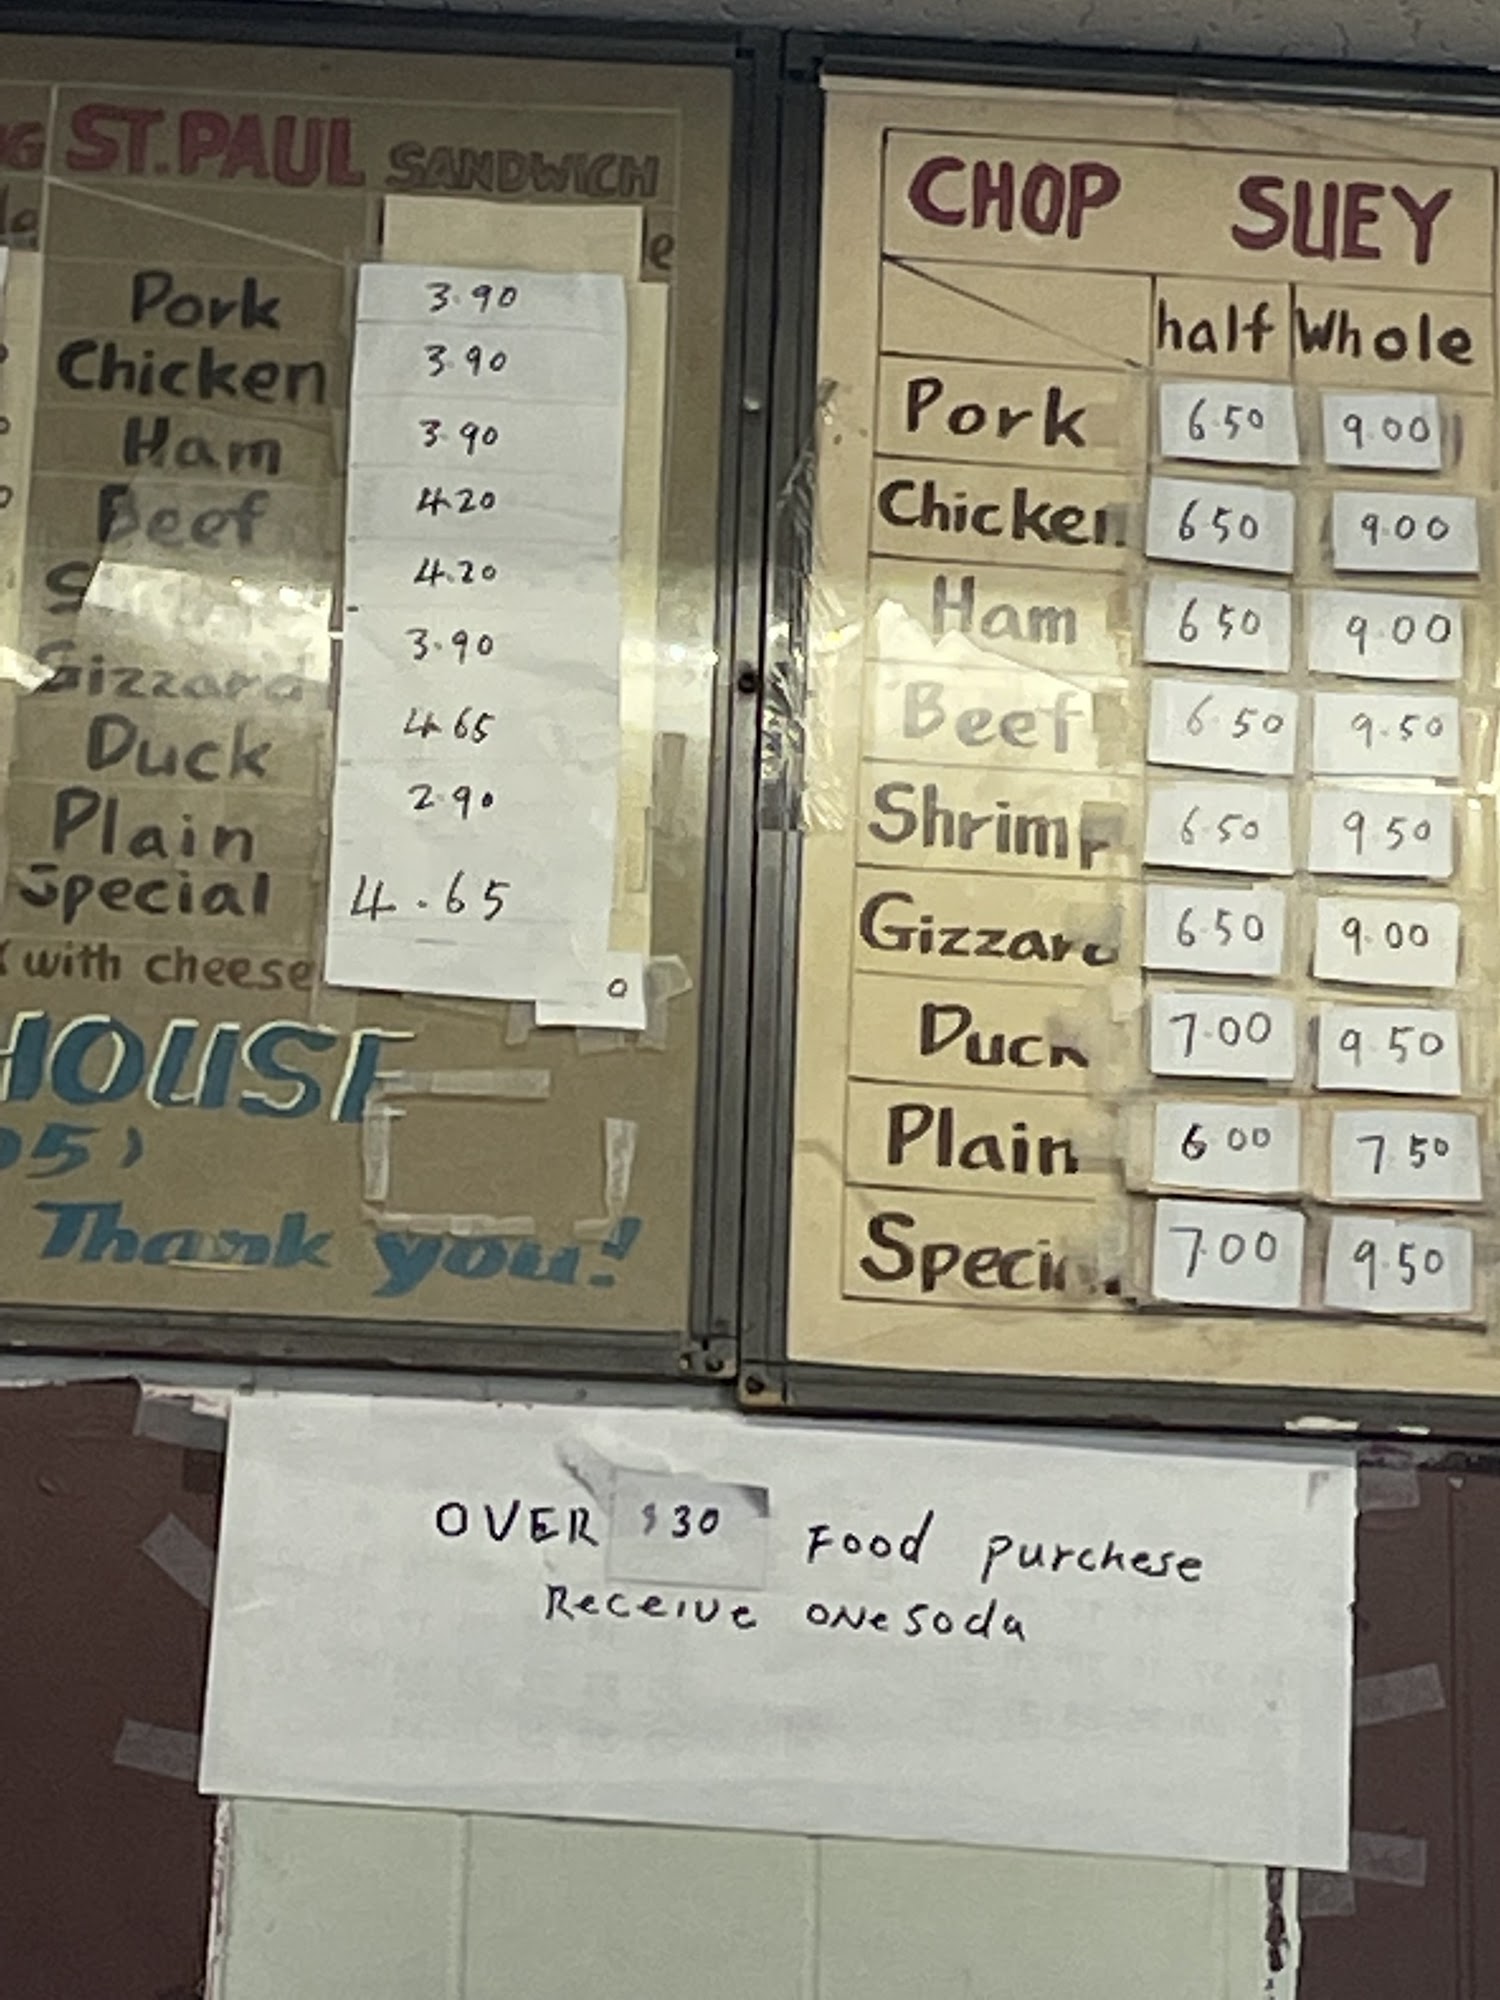 ST. PAUL SANDWICH
Pork 3.90
Chicken 3.90
Ham 3.90
Beef 4.20
4.20
Gizzard 3.90
Duck 4.65
Plain 2.90
Special 4.65
with cheese 0
HOUSE
05)
Thank you!
CHOP SUEY
half Whole
Pork 6.50 9.00
Chicken 6 50 9.00
Ham 6 50 9.00
Beef 6.50 9.50
Shrimp 6.50 9 50
Gizzard 6.50 9.00
Duck 7.00 9.50
Plain 6 00 7 50
Special 7.00 9.50
OVER $30 Food purchese
Receive one soda